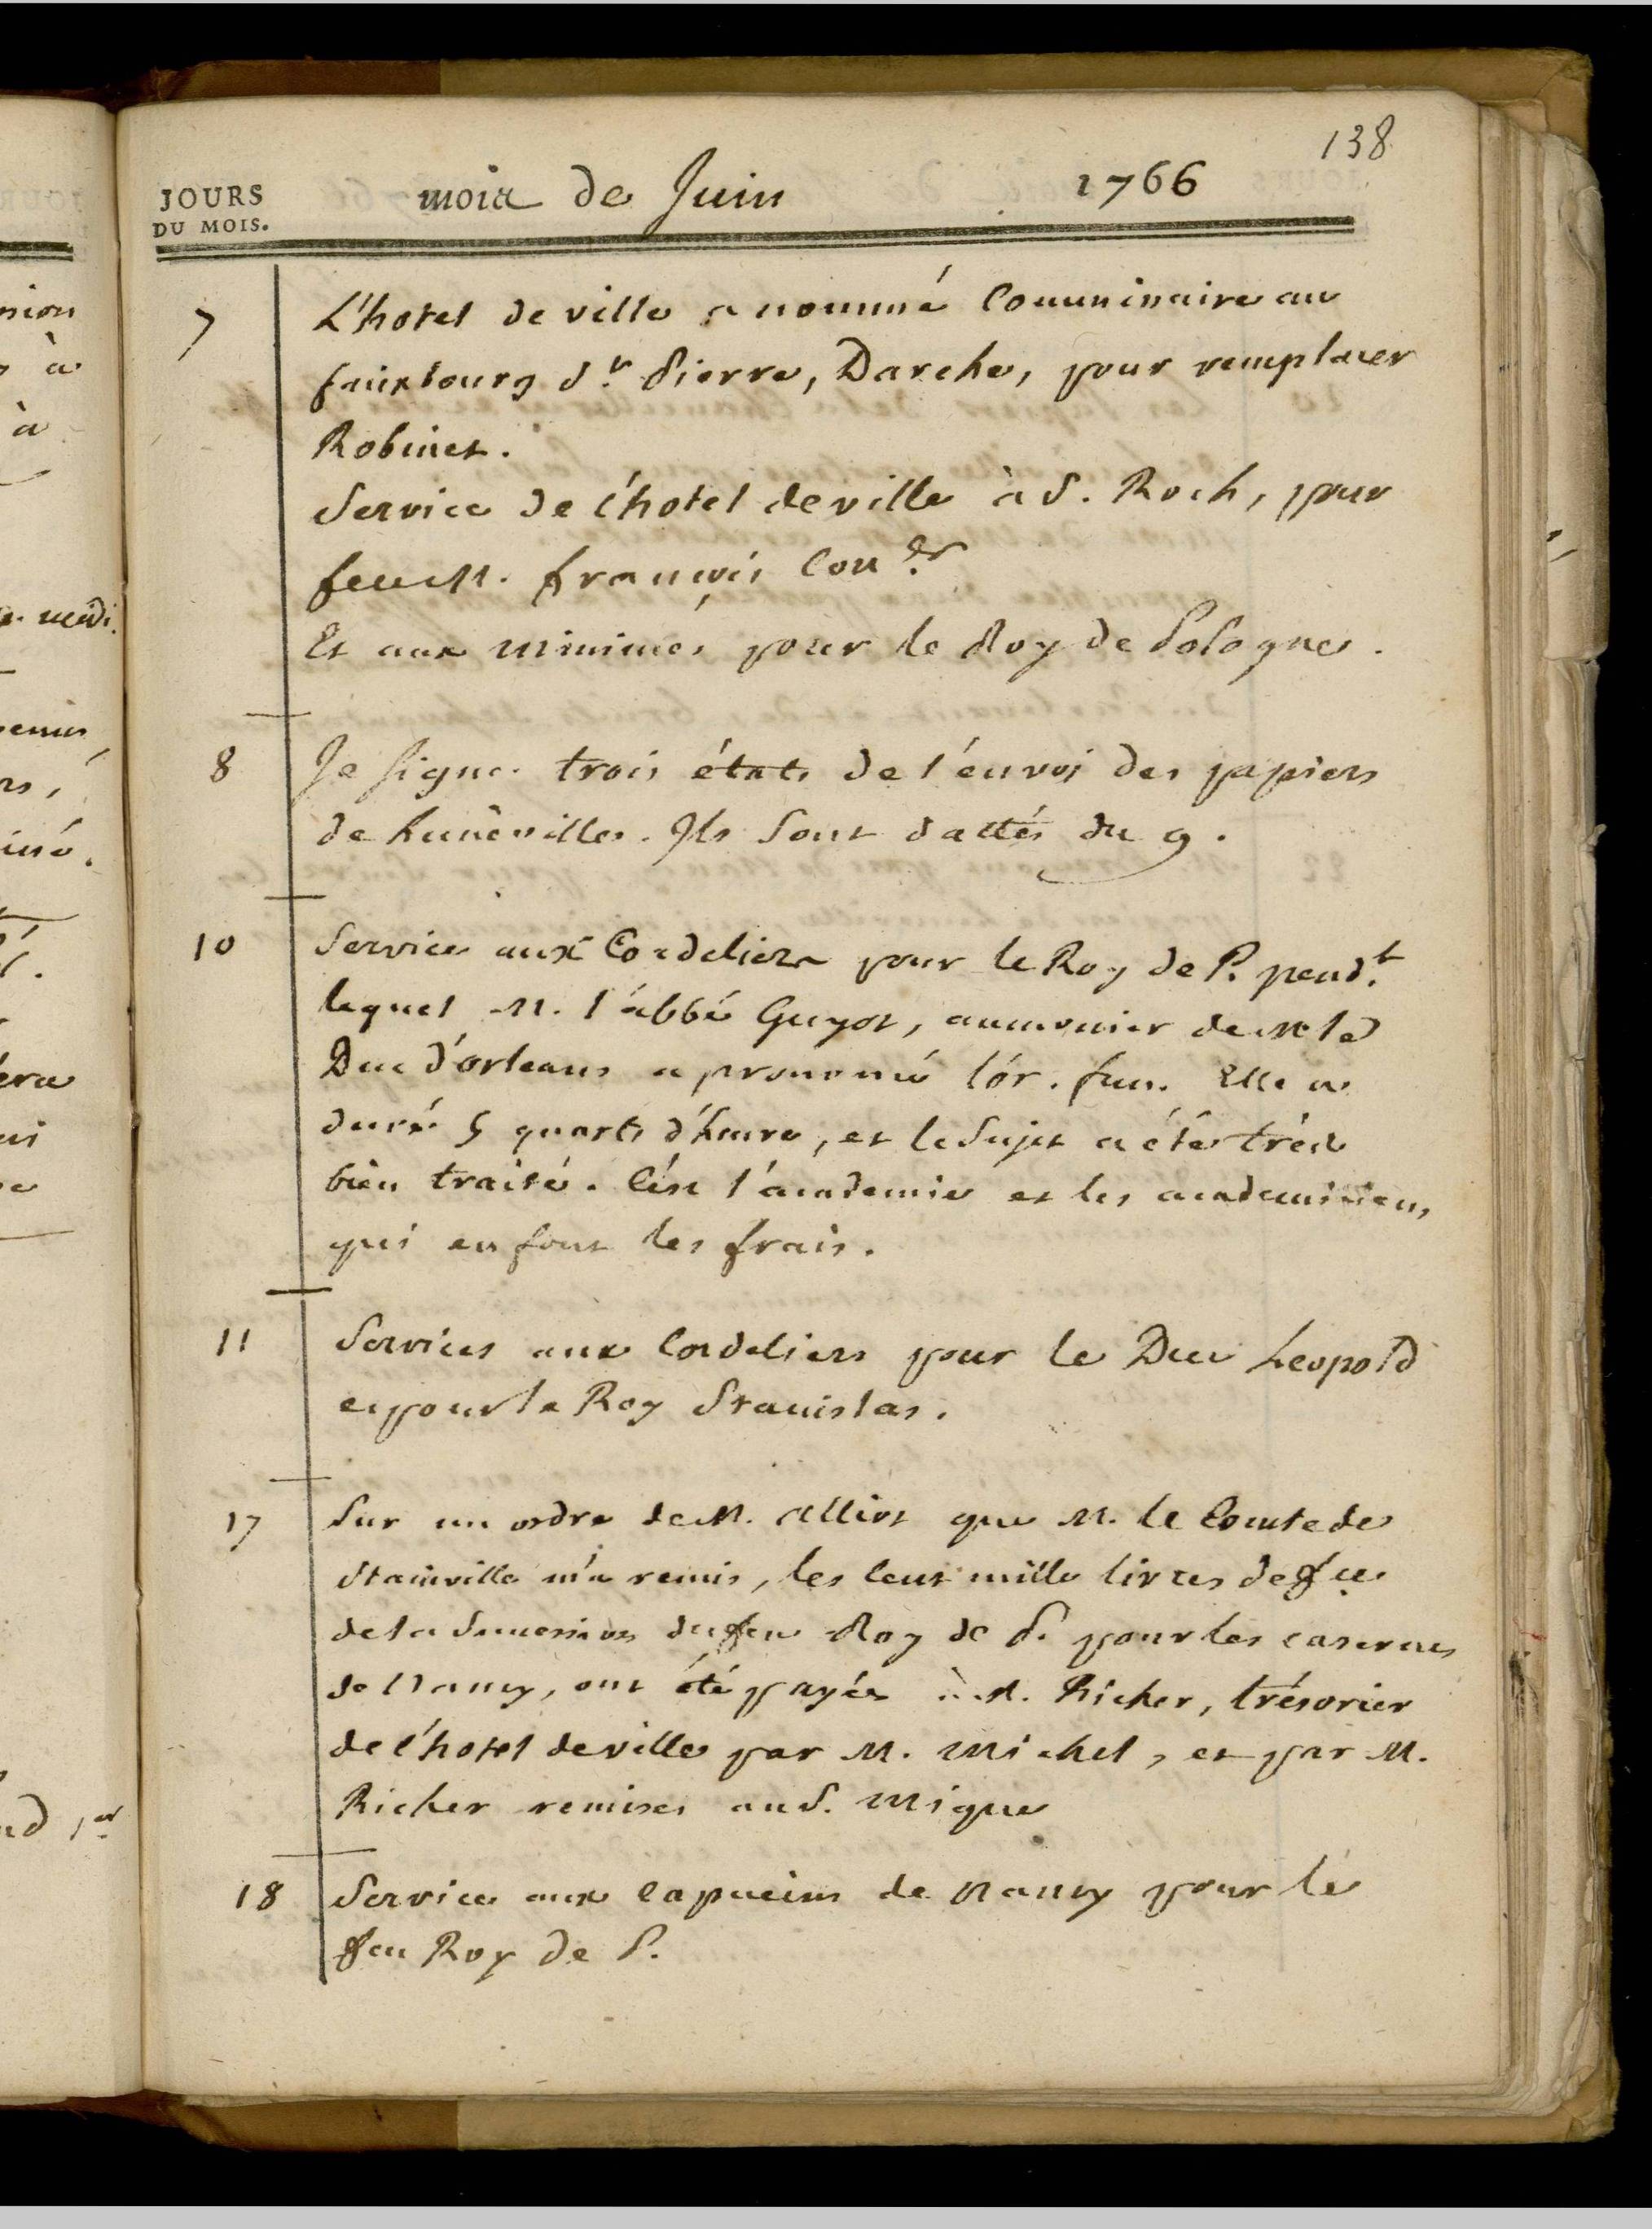 138
JOURS
DU MOIS.
mois de Juin 1766
7 L'hotel de ville a nommé Commissaire au
fauxbourg St. Pierre, Darche, pour remplacer
Robinet.
Service de l'hotel de ville à S. Roch, pour
feu M. françois Con.er
Et aux minimes pour le Roy de Pologne.
8 Je signe trois états de l'envoi des papiers
de Lunéville. Ils sont dattés du 9.
10 Service aux Cordeliers pour le Roy de P. pend.t
lequel M. l'abbé Guyot, aumonier de M le
Duc d'orleans a prononcé l'or. fun. Elle a
duré 5 quarts d'heure, et le sujet a été très
bien traité. C'est l'academie et les academiciens
qui en font les frais.
11 Services aux Cordeliers pour le Duc Leopold
et pour le Roy Stanislas.
17 Sur un ordre de M. Alliot que M. le Comte de
Stainville m'a remis, les cent mille livres de fce
de la succession du feu Roy de P. pour les casernes
de Nancy, ont été payées à M. Richer, trésorier
de l'hotel de ville par M. Michel, et par M.
Richer remises au S. Mique
18 Service aux Capucins de Nancy pour le
feu Roy de P.